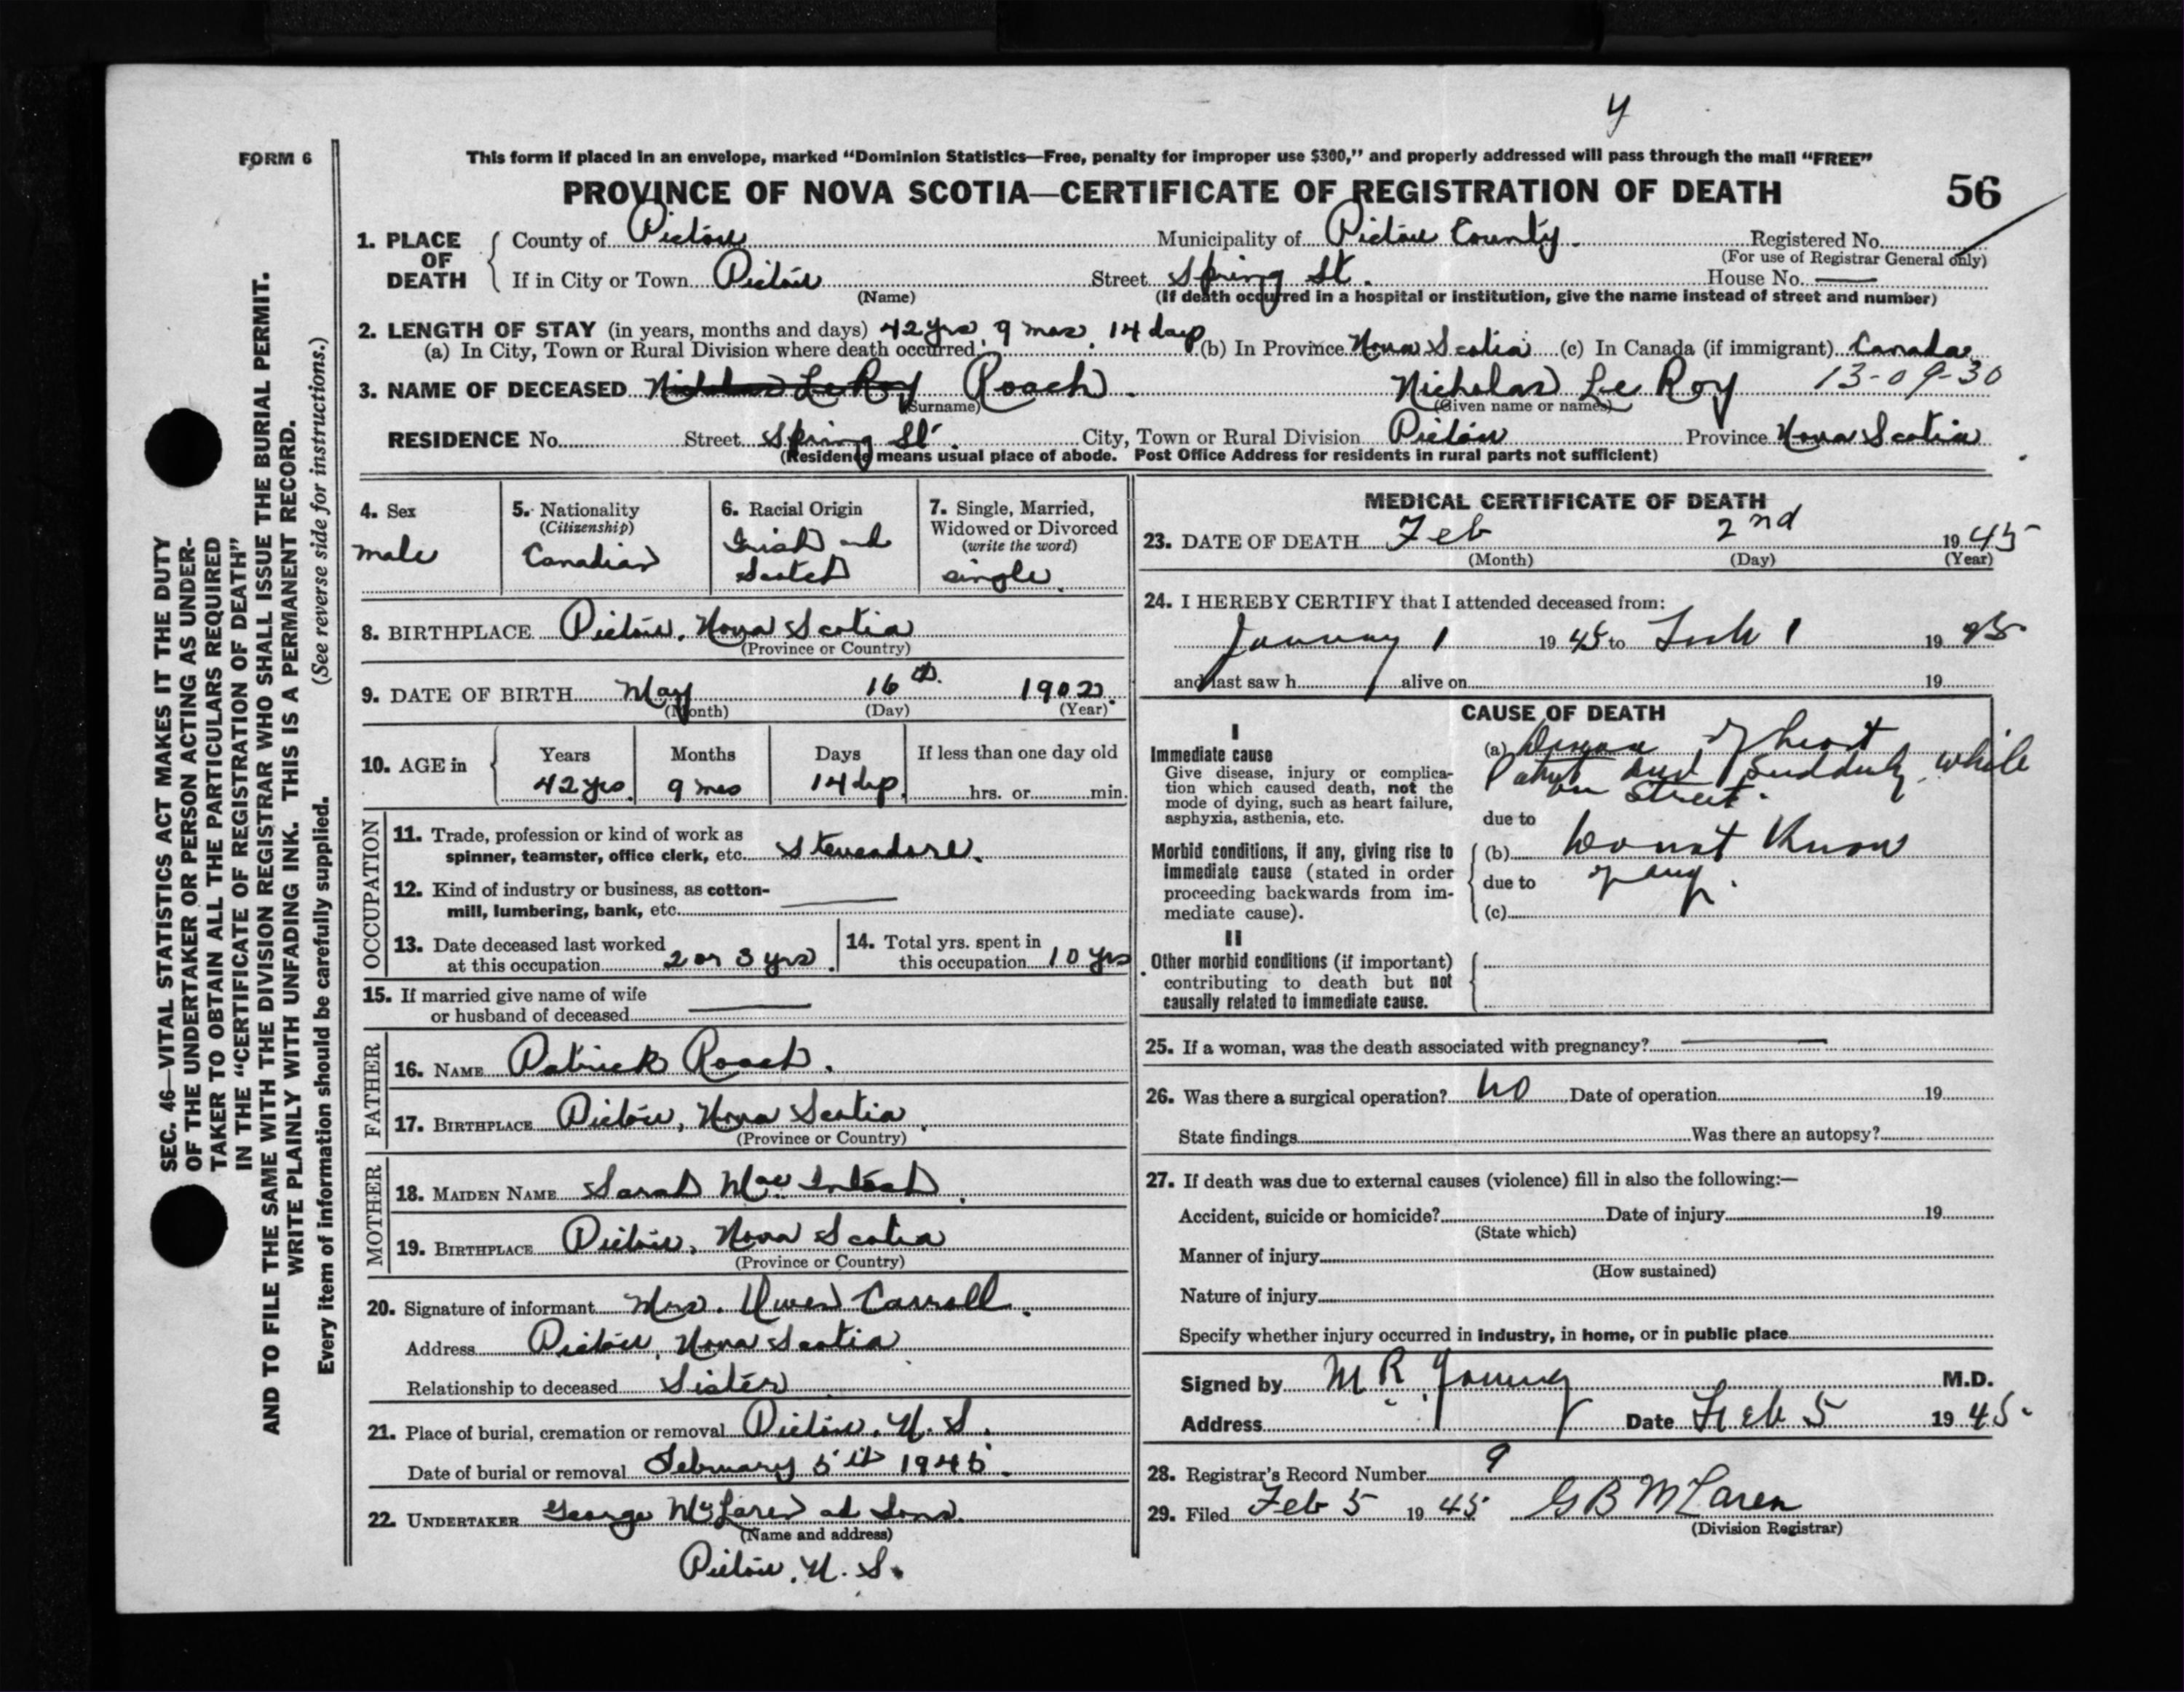 4
FORM 6
This form if placed in an envelope, marked “Dominion Statistics—Free, penalty for improper use $300,” and properly addressed will pass through the mail “FREE”
PROVINCE OF NOVA SCOTIA—CERTIFICATE OF REGISTRATION OF DEATH 56
1. PLACE OF DEATH
County of Pictou Municipality of Pictou County. Registered No.
(For use of Registrar General only)
If in City or Town Pictou Street Spring St. House No. —
(Name) (If death occurred in a hospital or institution, give the name instead of street and number)
2. LENGTH OF STAY (in years, months and days) 42 yrs, 9 mos, 14 days
(a) In City, Town or Rural Division where death occurred (b) In Province Nova Scotia (c) In Canada (if immigrant) Canada
3. NAME OF DECEASED Nicholas Le Roy Roach. Nicholas Le Roy 13-09-30
(Surname) (Given name or names)
RESIDENCE No. Street Spring St. City, Town or Rural Division Pictou Province Nova Scotia
(Residence means usual place of abode. Post Office Address for residents in rural parts not sufficient)
SEC. 46—VITAL STATISTICS ACT MAKES IT THE DUTY
OF THE UNDERTAKER OR PERSON ACTING AS UNDER-
TAKER TO OBTAIN ALL THE PARTICULARS REQUIRED
IN THE “CERTIFICATE OF REGISTRATION OF DEATH”
AND TO FILE THE SAME WITH THE DIVISION REGISTRAR WHO SHALL ISSUE THE BURIAL PERMIT.
WRITE PLAINLY WITH UNFADING INK. THIS IS A PERMANENT RECORD.
Every item of information should be carefully supplied. (See reverse side for instructions.)
4. Sex
male
5. Nationality
(Citizenship)
Canadian
6. Racial Origin
Irish and
Scotch
7. Single, Married,
Widowed or Divorced
(write the word)
single.
8. BIRTHPLACE Pictou, Nova Scotia
(Province or Country)
9. DATE OF BIRTH May 16th 1902
(Month) (Day) (Year)
10. AGE in
Years Months Days If less than one day old
42 yrs. 9 mos 14 dys. hrs. or min.
OCCUPATION
11. Trade, profession or kind of work as
spinner, teamster, office clerk, etc. Stevendore.
12. Kind of industry or business, as cotton-
mill, lumbering, bank, etc. —
13. Date deceased last worked
at this occupation 2 or 3 yrs.
14. Total yrs. spent in
this occupation 10 yrs
15. If married give name of wife
or husband of deceased —
FATHER
16. NAME Patrick Roach.
17. BIRTHPLACE Pictou, Nova Scotia.
(Province or Country)
MOTHER
18. MAIDEN NAME Sarah MacIntosh.
19. BIRTHPLACE Pictou, Nova Scotia
(Province or Country)
20. Signature of informant Mrs. Owen Carroll.
Address Pictou, Nova Scotia
Relationship to deceased Sister
21. Place of burial, cremation or removal Pictou, N. S.
Date of burial or removal February 5th 1945.
22. UNDERTAKER George McLaren and Sons.
(Name and address)
Pictou, N. S.
MEDICAL CERTIFICATE OF DEATH
23. DATE OF DEATH Feb 2nd 1945
(Month) (Day) (Year)
24. I HEREBY CERTIFY that I attended deceased from:
January 1 1945 to 1 1945
and last saw h alive on 19
CAUSE OF DEATH
I
Immediate cause
Give disease, injury or complica-
tion which caused death, not the
mode of dying, such as heart failure,
asphyxia, asthenia, etc.
(a) Disease of heart
Patient died suddenly while
on street.
due to
Morbid conditions, if any, giving rise to
immediate cause (stated in order
proceeding backwards from im-
mediate cause).
(b) Do not Know
due to of any.
(c)
II
Other morbid conditions (if important)
contributing to death but not
causally related to immediate cause.
25. If a woman, was the death associated with pregnancy? —
26. Was there a surgical operation? No Date of operation 19
State findings Was there an autopsy?
27. If death was due to external causes (violence) fill in also the following:—
Accident, suicide or homicide? Date of injury 19
(State which)
Manner of injury
(How sustained)
Nature of injury
Specify whether injury occurred in industry, in home, or in public place
Signed by M R Young M.D.
Address Date Feb 5 1945.
28. Registrar's Record Number 9
29. Filed Feb 5 1945 G B McLaren
(Division Registrar)